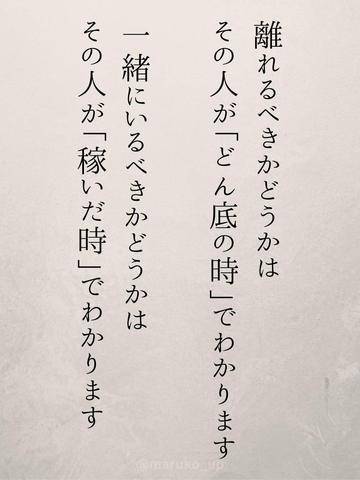 離れるべきかどうかは
その人が「どん底の時」でわかります
一緒にいるべきかどうかは
その人が「稼いだ時」でわかります
@maruko_up